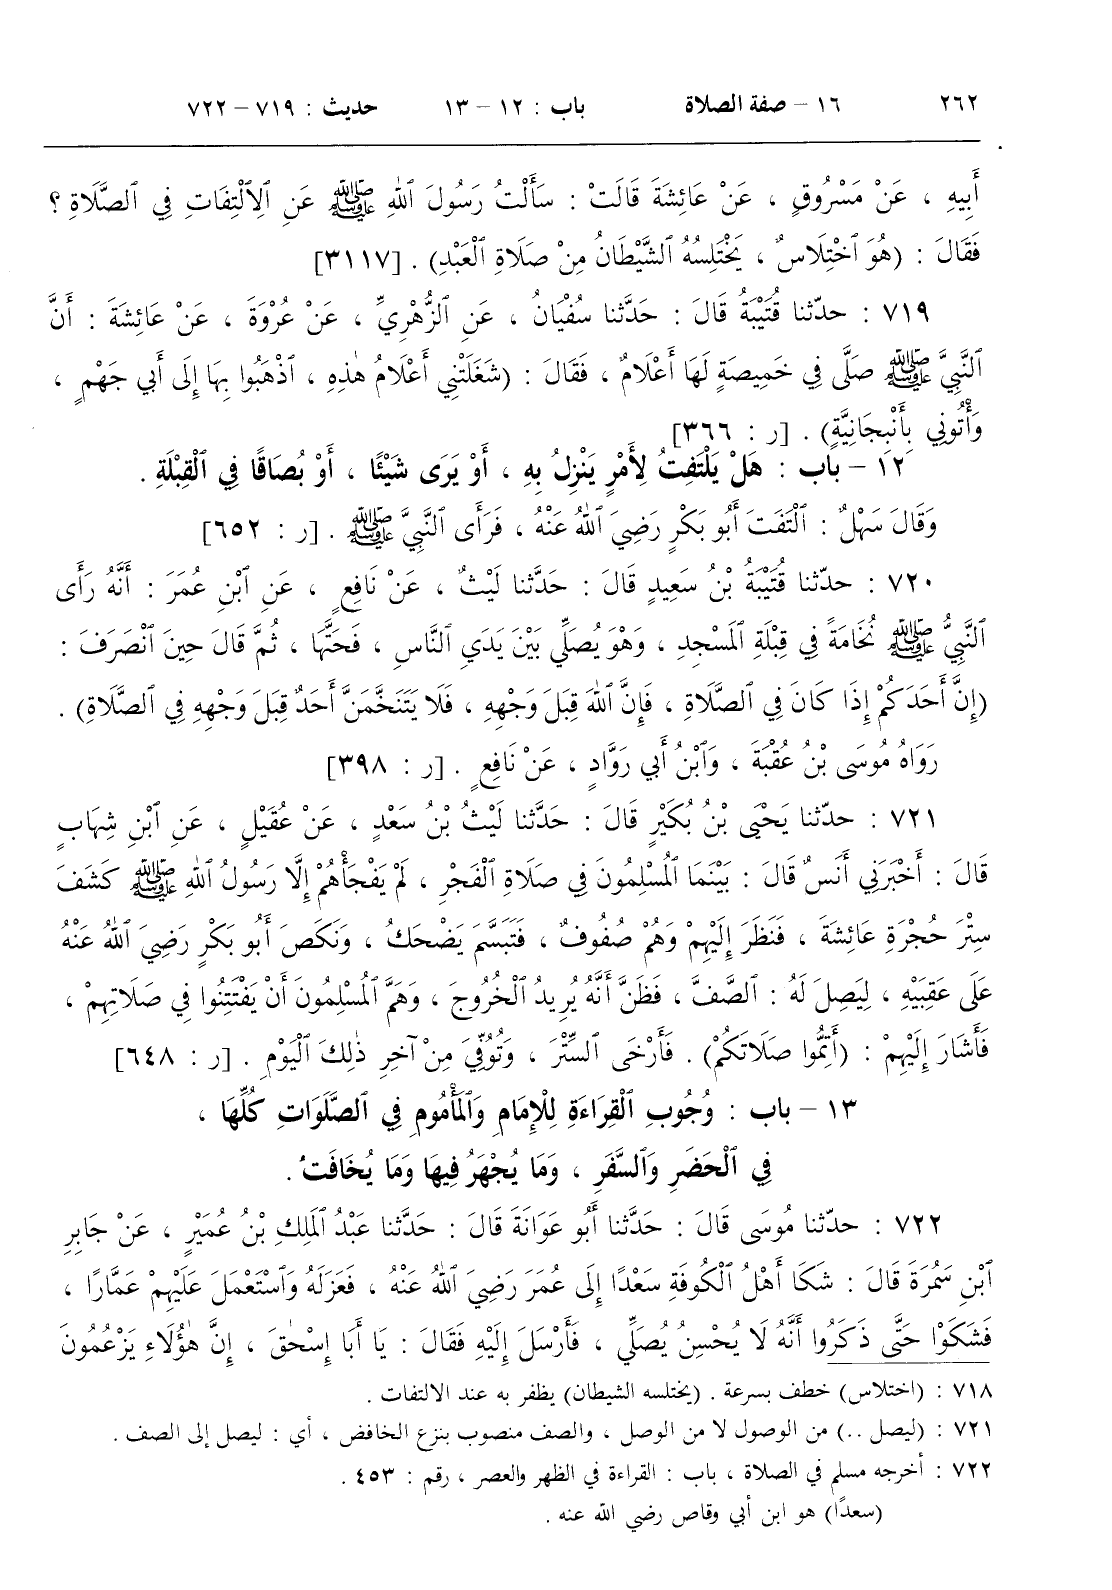 ٢٦٢ ١٦ – صفة الصلاة باب : ١٢ – ١٣ حديث : ٧١٩ – ٧٢٢
أَبِيهِ ، عَنْ مَسْرُوقٍ ، عَنْ عَائِشَةَ قَالَتْ : سَأَلْتُ رَسُولَ ٱللهِ ﷺ عَنِ ٱلِالْتِفَاتِ فِي ٱلصَّلَاةِ ؟
فَقَالَ : (هُوَ ٱخْتِلَاسٌ ، يَخْتَلِسُهُ ٱلشَّيْطَانُ مِنْ صَلَاةِ ٱلْعَبْدِ) . [٣١١٧]
٧١٩ : حدّثنا قُتَيْبَةُ قَالَ : حَدَّثَنا سُفْيَانُ ، عَنِ ٱلزُّهْرِيِّ ، عَنْ عُرْوَةَ ، عَنْ عَائِشَةَ : أَنَّ
ٱلنَّبِيَّ ﷺ صَلَّى فِي خَمِيصَةٍ لَهَا أَعْلَامٌ ، فَقَالَ : (شَغَلَتْنِي أَعْلَامُ هٰذِهِ ، ٱذْهَبُوا بِهَا إِلَى أَبِي جَهْمٍ ،
وَأْتُونِي بِأَنْبِجَانِيَّةٍ) . [ر : ٣٦٦]
١٢ – باب : هَلْ يَلْتَفِتُ لِأَمْرٍ يَنْزِلُ بِهِ ، أَوْ يَرَى شَيْئًا ، أَوْ بُصَاقًا فِي ٱلْقِبْلَةِ .
وَقَالَ سَهْلٌ : ٱلْتَفَتَ أَبُو بَكْرٍ رَضِيَ ٱللهُ عَنْهُ ، فَرَأَى ٱلنَّبِيَّ ﷺ . [ر : ٦٥٢]
٧٢٠ : حدّثنا قُتَيْبَةُ بْنُ سَعِيدٍ قَالَ : حَدَّثَنا لَيْثٌ ، عَنْ نَافِعٍ ، عَنِ ٱبْنِ عُمَرَ : أَنَّهُ رَأَى
ٱلنَّبِيُّ ﷺ نُخَامَةً فِي قِبْلَةِ ٱلْمَسْجِدِ ، وَهْوَ يُصَلِّي بَيْنَ يَدَيِ ٱلنَّاسِ ، فَحَتَّهَا ، ثُمَّ قَالَ حِينَ ٱنْصَرَفَ :
(إِنَّ أَحَدَكُمْ إِذَا كَانَ فِي ٱلصَّلَاةِ ، فَإِنَّ ٱللهَ قِبَلَ وَجْهِهِ ، فَلَا يَتَنَخَّمَنَّ أَحَدٌ قِبَلَ وَجْهِهِ فِي ٱلصَّلَاةِ) .
رَوَاهُ مُوسَى بْنُ عُقْبَةَ ، وَٱبْنُ أَبِي رَوَّادٍ ، عَنْ نَافِعٍ . [ر : ٣٩٨]
٧٢١ : حدّثنا يَحْيَى بْنُ بُكَيْرٍ قَالَ : حَدَّثَنا لَيْثُ بْنُ سَعْدٍ ، عَنْ عُقَيْلٍ ، عَنِ ٱبْنِ شِهَابٍ
قَالَ : أَخْبَرَنِي أَنَسٌ قَالَ : بَيْنَمَا ٱلْمُسْلِمُونَ فِي صَلَاةِ ٱلْفَجْرِ ، لَمْ يَفْجَأْهُمْ إِلَّا رَسُولُ ٱللهِ ﷺ كَشَفَ
سِتْرَ حُجْرَةِ عَائِشَةَ ، فَنَظَرَ إِلَيْهِمْ وَهُمْ صُفُوفٌ ، فَتَبَسَّمَ يَضْحَكُ ، وَنَكَصَ أَبُو بَكْرٍ رَضِيَ ٱللهُ عَنْهُ
عَلَى عَقِبَيْهِ ، لِيَصِلَ لَهُ : ٱلصَّفَّ ، فَظَنَّ أَنَّهُ يُرِيدُ ٱلْخُرُوجَ ، وَهَمَّ ٱلْمُسْلِمُونَ أَنْ يَفْتَتِنُوا فِي صَلَاتِهِمْ ،
فَأَشَارَ إِلَيْهِمْ : (أَتِمُّوا صَلَاتَكُمْ) . فَأَرْخَى ٱلسِّتْرَ ، وَتُوُفِّيَ مِنْ آخِرِ ذٰلِكَ ٱلْيَوْمِ . [ر : ٦٤٨]
١٣ – باب : وُجُوبِ ٱلْقِرَاءَةِ لِلْإِمَامِ وَٱلْمَأْمُومِ فِي ٱلصَّلَوَاتِ كُلِّهَا ،
فِي ٱلْحَضَرِ وَٱلسَّفَرِ ، وَمَا يُجْهَرُ فِيهَا وَمَا يُخَافَتُ .
٧٢٢ : حدّثنا مُوسَى قَالَ : حَدَّثَنا أَبُو عَوَانَةَ قَالَ : حَدَّثَنا عَبْدُ ٱلْمَلِكِ بْنُ عُمَيْرٍ ، عَنْ جَابِرِ
ٱبْنِ سَمُرَةَ قَالَ : شَكَا أَهْلُ ٱلْكُوفَةِ سَعْدًا إِلَى عُمَرَ رَضِيَ ٱللهُ عَنْهُ ، فَعَزَلَهُ وَٱسْتَعْمَلَ عَلَيْهِمْ عَمَّارًا ،
فَشَكَوْا حَتَّى ذَكَرُوا أَنَّهُ لَا يُحْسِنُ يُصَلِّي ، فَأَرْسَلَ إِلَيْهِ فَقَالَ : يَا أَبَا إِسْحٰقَ ، إِنَّ هٰؤُلَاءِ يَزْعُمُونَ
٧١٨ : (اختلاس) خطف بسرعة . (يختلسه الشيطان) يظفر به عند الالتفات .
٧٢١ : (ليصل ..) من الوصول لا من الوصل ، والصف منصوب بنزع الخافض ، أي : ليصل إلى الصف .
٧٢٢ : أخرجه مسلم في الصلاة ، باب : القراءة في الظهر والعصر ، رقم : ٤٥٣ .
(سعدًا) هو ابن أبي وقاص رضي الله عنه .